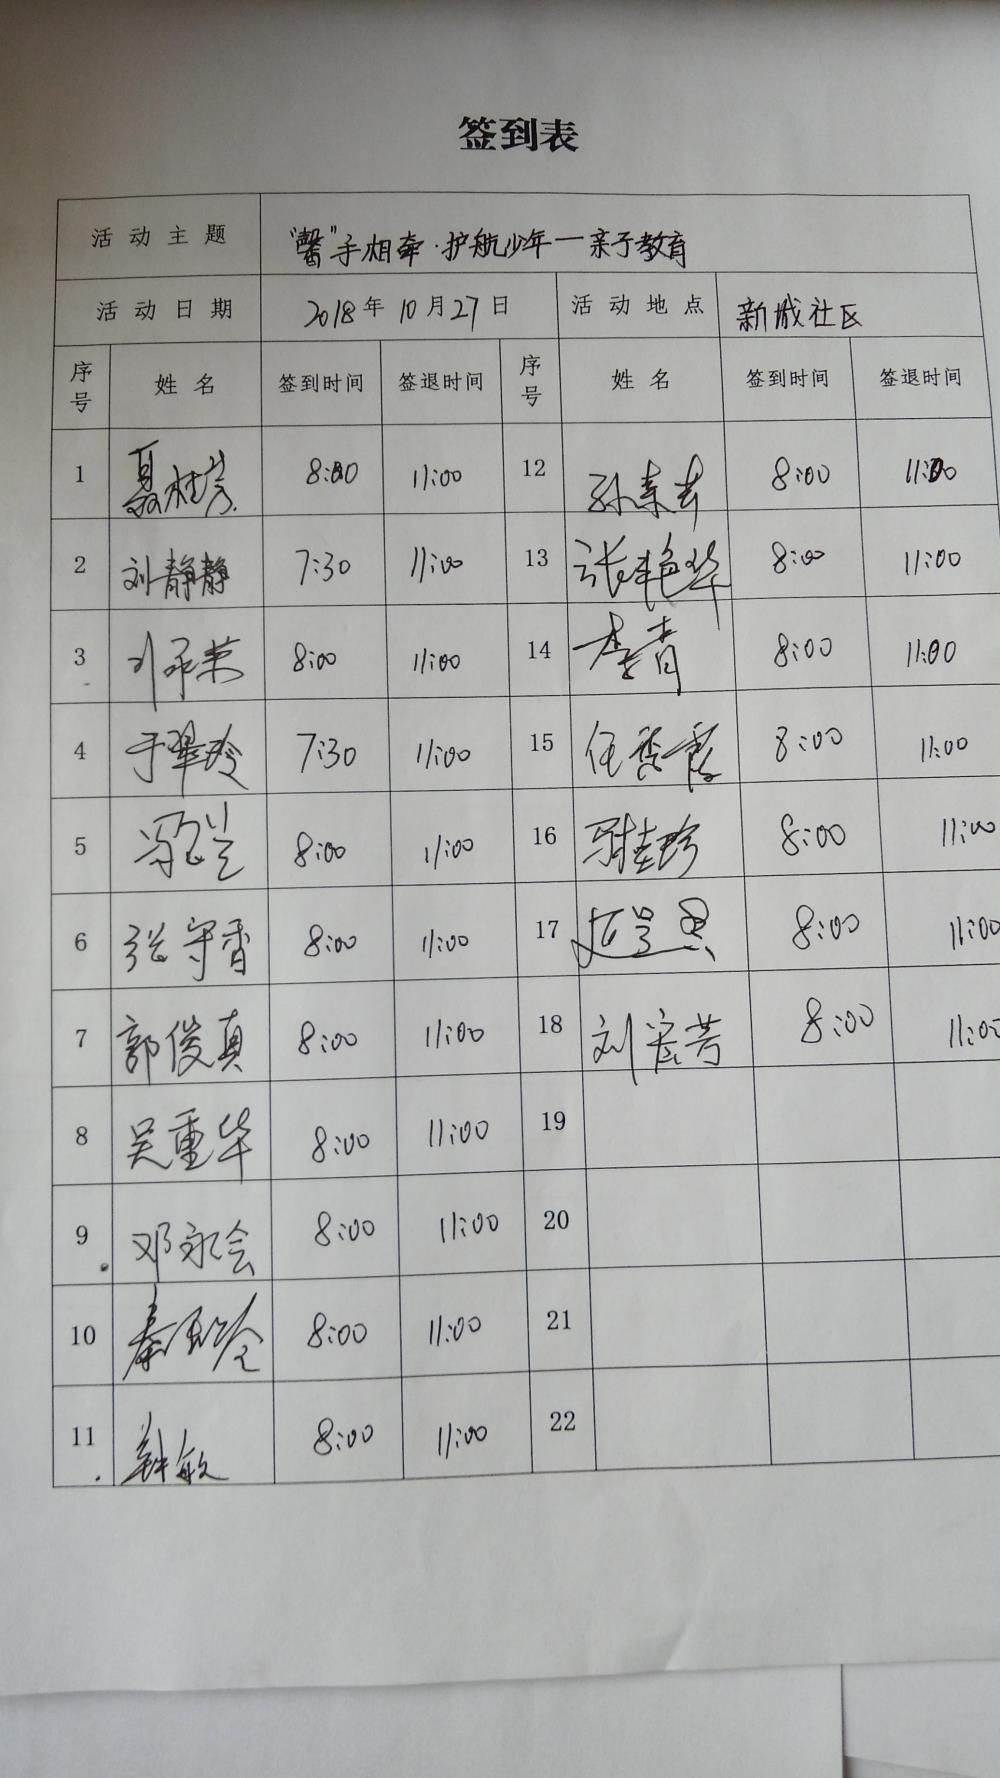 签到表
活动主题 “馨”手相牵·护航少年—亲子教育
活动日期 2018年10月27日 活动地点 新城社区
序号 姓名 签到时间 签退时间 序号 姓名 签到时间 签退时间
1 聂桂芳 8:00 11:00 12 孙素芳 8:00 11:00
2 刘静静 7:30 11:00 13 张艳华 8:00 11:00
3 8:00 11:00 14 李青 8:00 11:00
4 于翠玲 7:30 11:00 15 任秀霞 8:00 11:00
5 8:00 11:00 16 8:00 11:00
6 张守香 8:00 11:00 17 8:00 11:00
7 郭俊真 8:00 11:00 18 刘宏芳 8:00 11:00
8 吴重华 8:00 11:00 19
9 邓永会 8:00 11:00 20
10 8:00 11:00 21
11 8:00 11:00 22